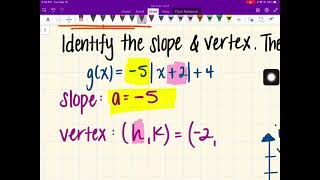 Identify the slope & vertex. The
g(x) = -5|x+2|+4
slope: a=-5
vertex: (h,k) = (-2,